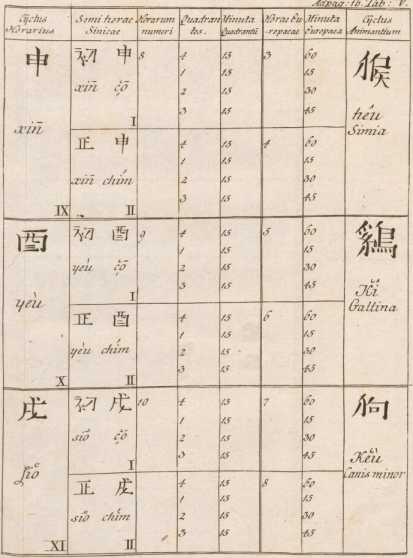 Ad pag: 16. Tab: V.
Cyclus Horarius | Semi horae Sinicae | Horarum numeri | Quadrantes. | Minuta Quadrantū | Horae Europaeae | Minuta Europaea | Cyclus Animantium
申 | 初 申 | 8 | 4 | 15 | 3 | 60 | 猴
1 | 15 | 15
xin̄ | xin̄ çō | 2 | 15 | 30 | héu
3 | 15 | 45 | Simia
I
正 申 | 4 | 15 | 4 | 60
1 | 15 | 15
xin̄ chím | 2 | 15 | 30
3 | 15 | 45
IX | II
酉 | 初 酉 | 9 | 4 | 15 | 5 | 60 | 鷄
1 | 15 | 15
yeù | yeù çō | 2 | 15 | 30 | Kī
3 | 15 | 45 | Gallina
I
正 酉 | 4 | 15 | 6 | 60
1 | 15 | 15
yeù chím | 2 | 15 | 30
3 | 15 | 45
X | II
戌 | 初 戌 | 10 | 4 | 15 | 7 | 60 | 狗
1 | 15 | 15
siŏ | siŏ çō | 2 | 15 | 30 | Keù
3 | 15 | 45 | Canis minor
I
正 戌 | 4 | 15 | 8 | 60
1 | 15 | 15
siŏ chím | 2 | 15 | 30
3 | 15 | 45
XI | II